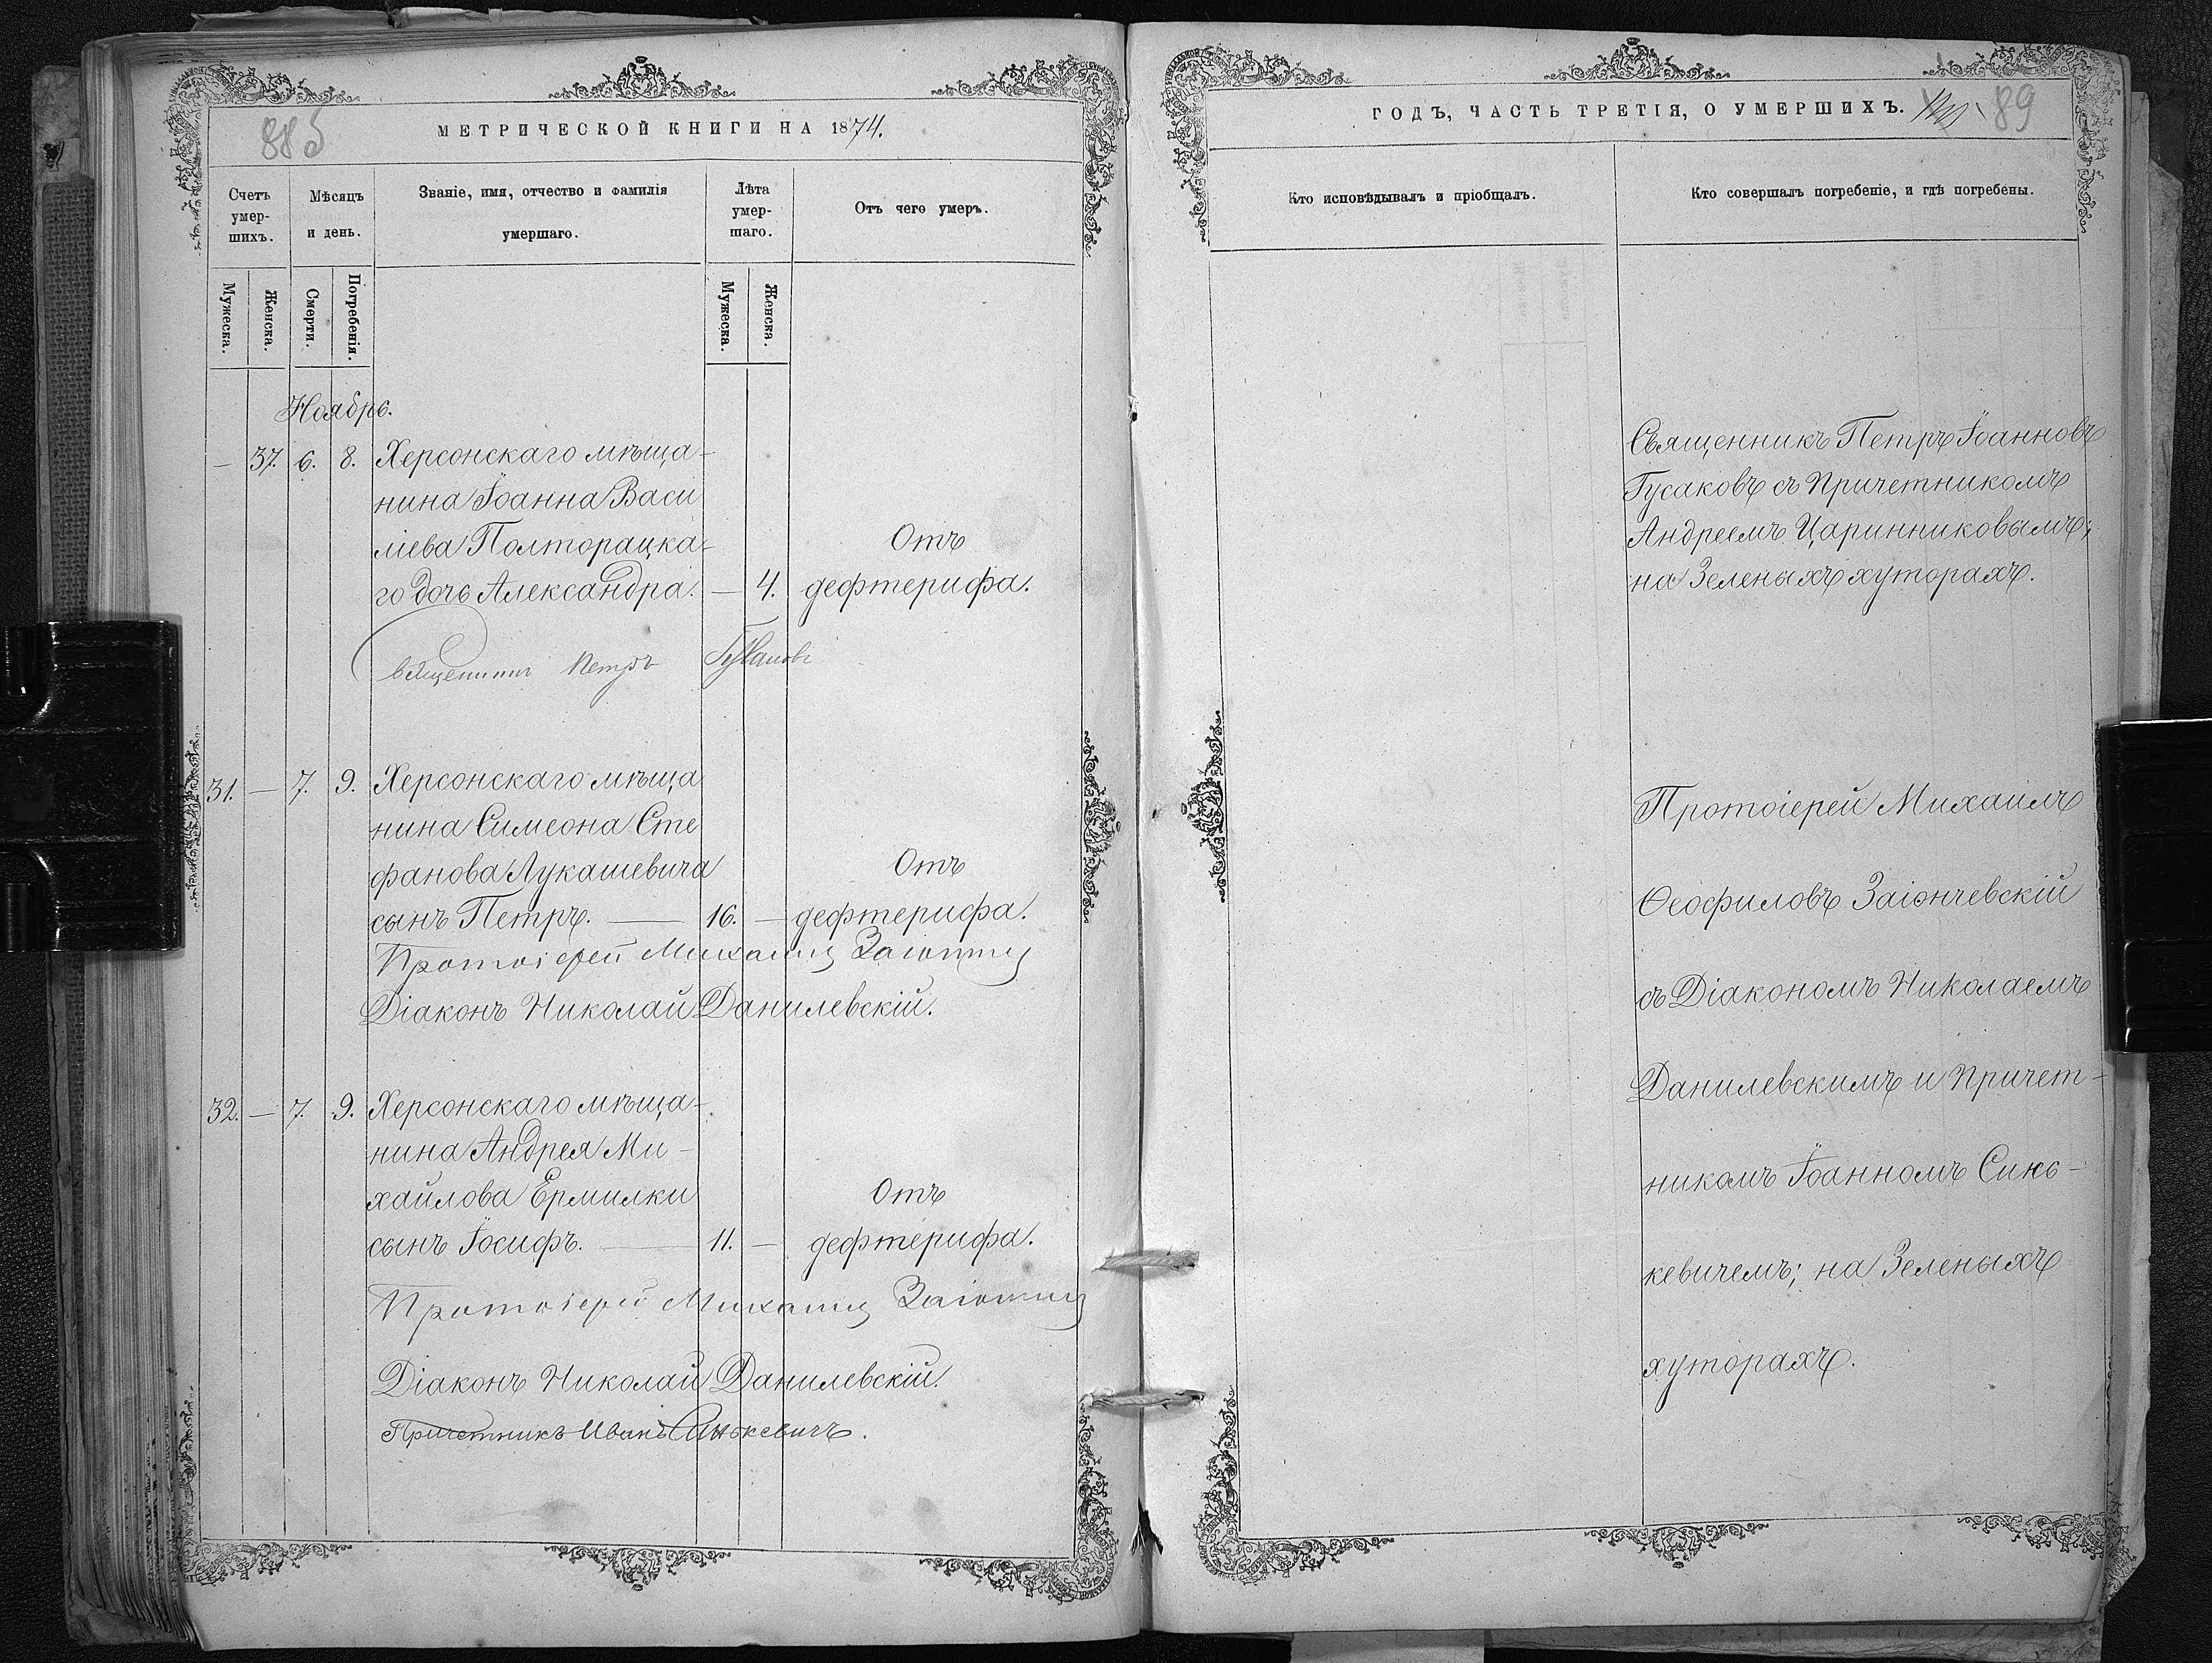 885
МЕТРИЧЕСКОЙ КНИГИ НА 1874.
Счетъ умер-шихъ.
Мѣсяцъ и день.
Званіе, имя, отчество и фамилія
умершаго.
Лѣта умер-шаго.
Отъ чего умеръ.
Мужеска.
Женска.
Смерти.
Погребенія.
Мужеска.
Женска.
Ноябрь.
— 37. 6. 8. Херсонскаго мѣща-
нина Іоанна Васи
ліева Полторацка-
го дочь Александра. — 4.
Отъ
дефтерифа.
Священникъ Петръ Гусаковъ
31. — 7. 9. Херсонскаго мѣща
нина Симеона Сте
фанова Лукашевича
сынъ Петръ. — 16. —
Отъ
дефтерифа.
Протоіерей Михаилъ
Діаконъ Николай Данилевскій.
32. — 7. 9. Херсонскаго мѣща-
нина Андрея Ми-
хайлова Ермилки
сынъ Іосифъ. — 11. —
Отъ
дефтерифа.
Протоіерей Михаилъ
Діаконъ Николай Данилевскій.
Причетникъ Иванъ Синькевичъ.
ГОДЪ, ЧАСТЬ ТРЕТІЯ, О УМЕРШИХЪ.
89
Кто исповѣдывалъ и пріобщалъ.
Кто совершалъ погребеніе, и гдѣ погребены.
Священникъ Петръ Іоанновъ
Гусаковъ съ Причетникомъ
Андреемъ Царинниковымъ;
на Зеленыхъ хуторахъ.
Протоіерей Михаилъ
Ѳеофиловъ Заіончевскій
съ Діакономъ Николаемъ
Данилевскимъ и Причет-
никомъ Іоанномъ Синь-
кевичемъ; на Зеленыхъ
хуторахъ.